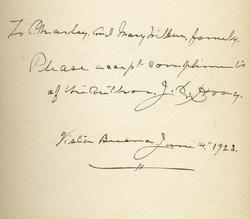 To Charley, and Mary Wilbur, family.
Please accept compliments
of the author. J. L.
Vista Buena June 14" 1923.